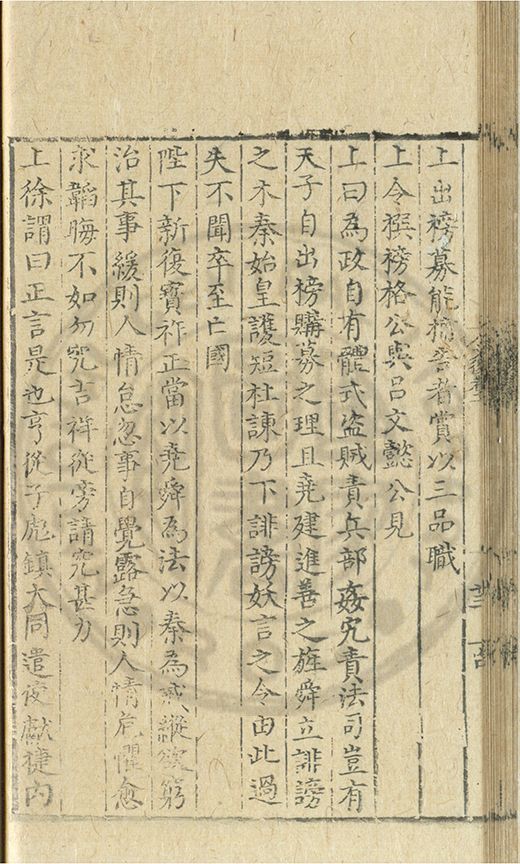 上出榜募能捕告者賞以三品職
上令撰榜格公與呂文懿公見
上曰為政自有體式盜賊責兵部姦宄責法司豈有
天子自出榜購募之理且堯建進善之旌舜立誹謗
之木秦始皇護短杜諫乃下誹謗妖言之令由此過
失不聞卒至亡國
陛下新復寶祚正當以堯舜為法以秦為戒縱欲窮
治其事緩則人情怠忽事自覺露急則人情危懼愈
求韜晦不如勿究吉祥從旁請究甚力
上徐謂曰正言是也亨從子彪鎮大同遣使獻捷內